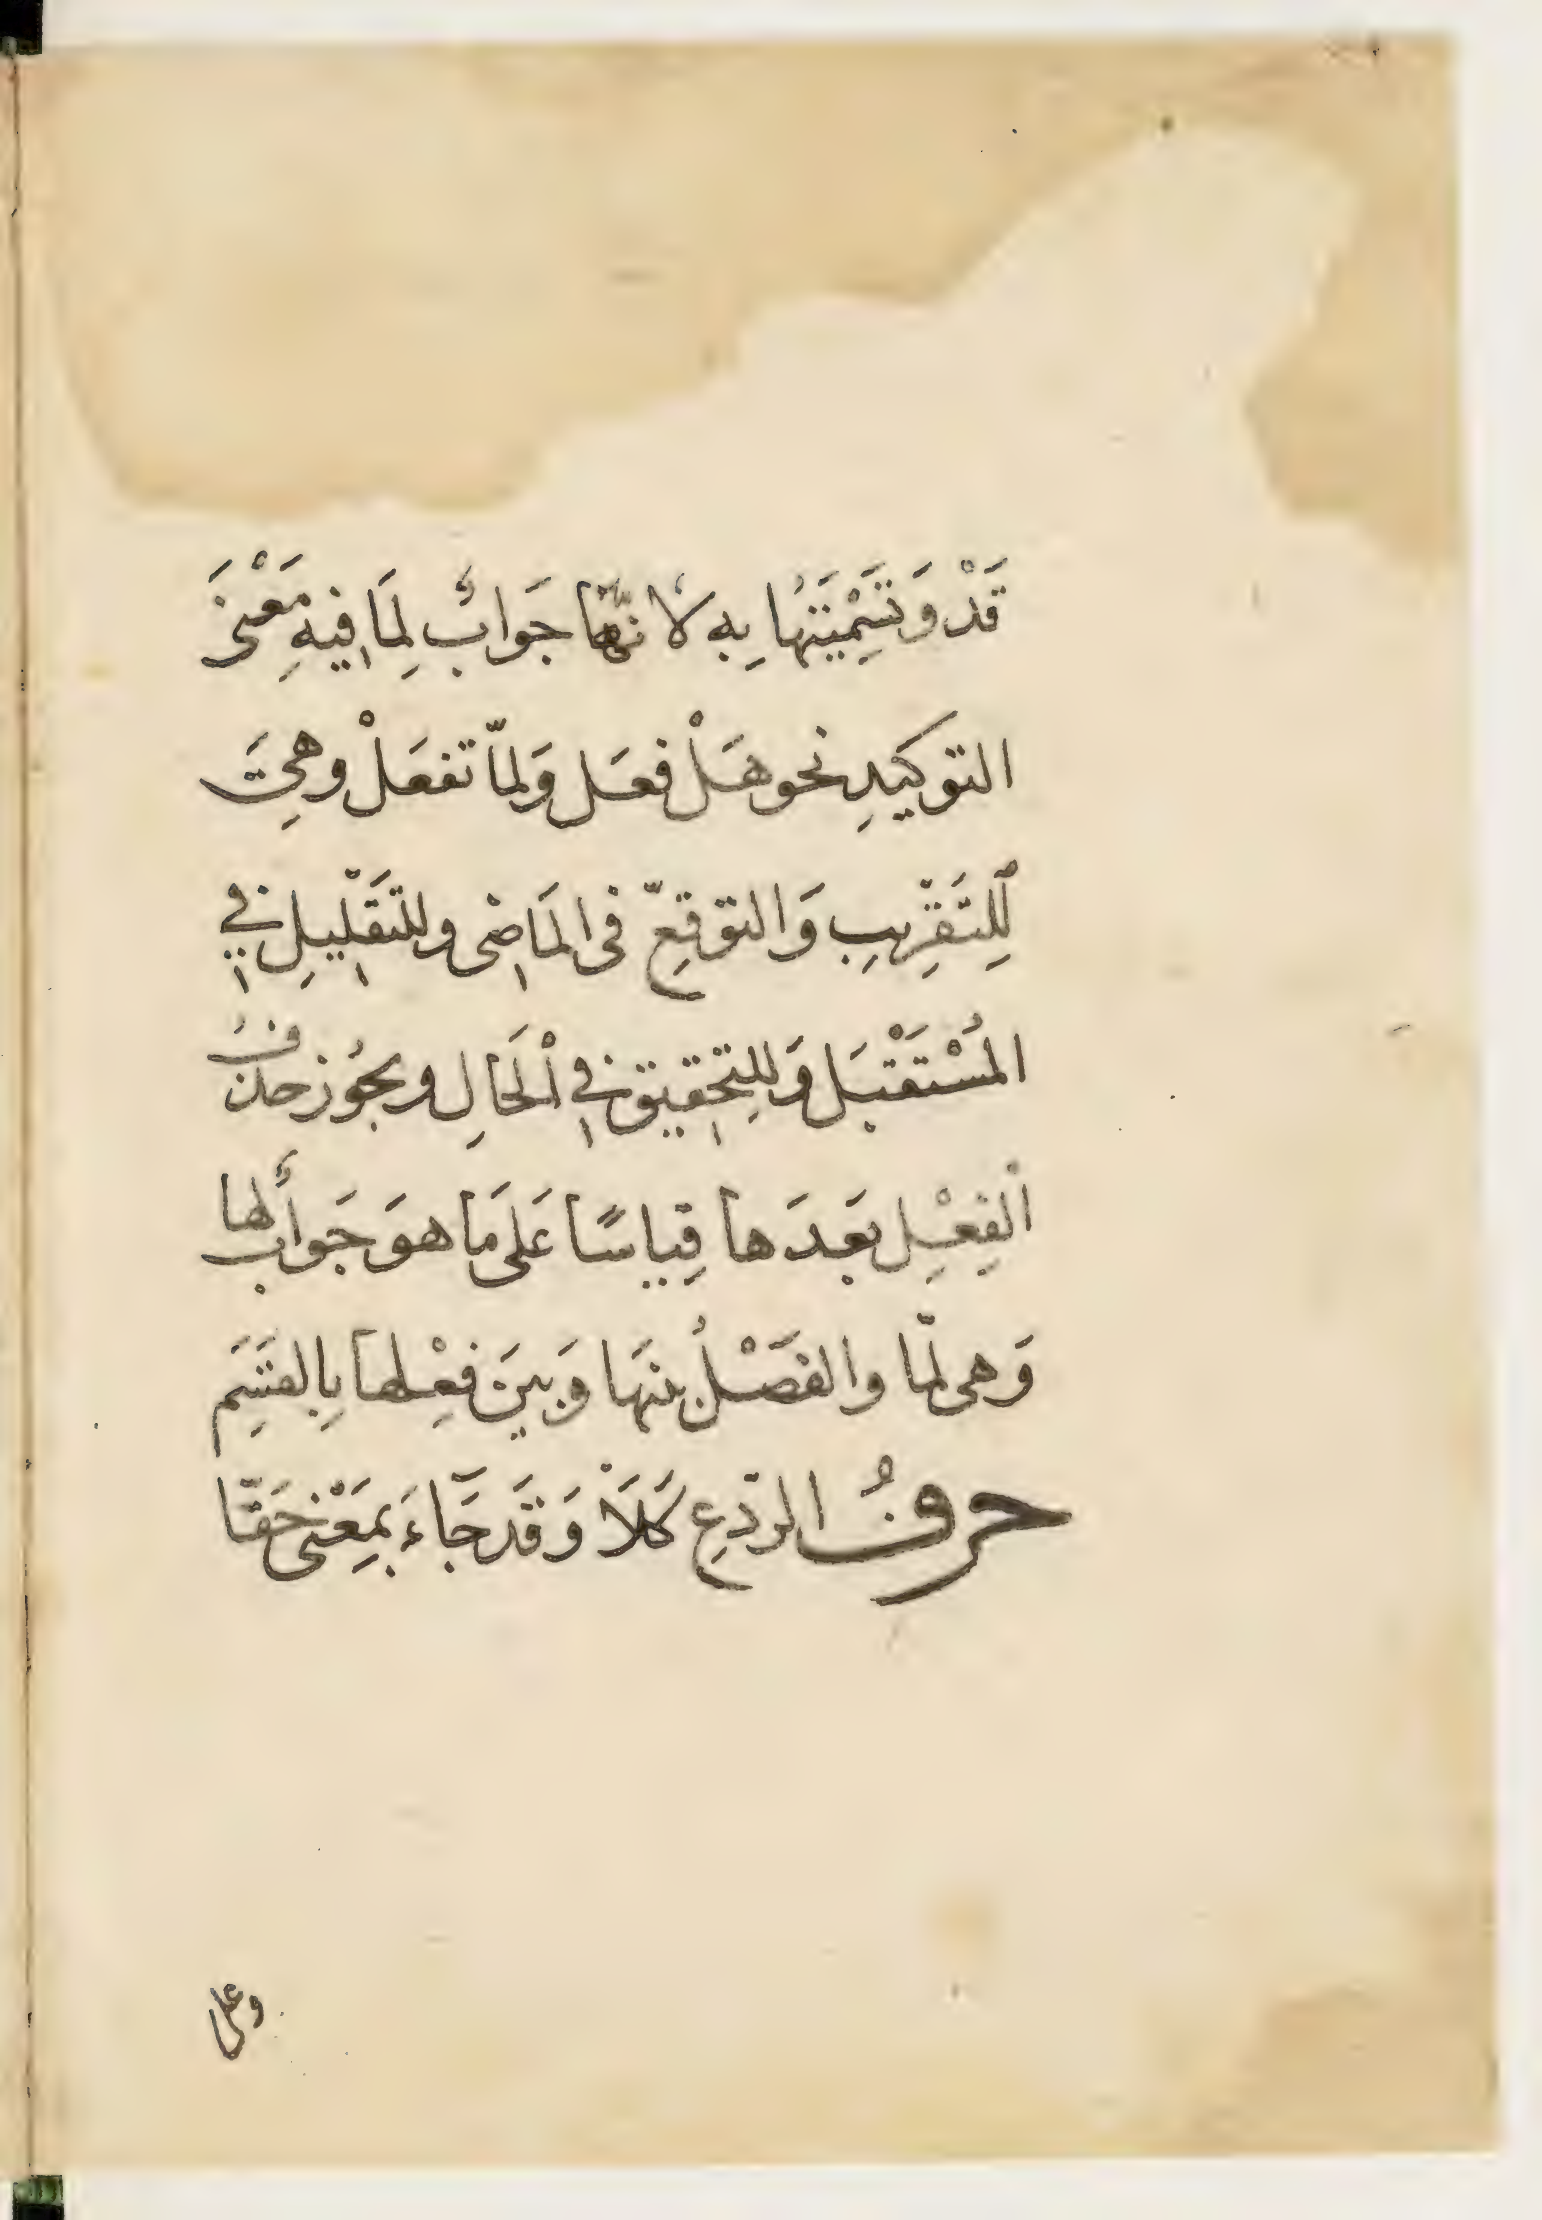 قَدْ وَتَسْمِيَتُهَا بِهِ لِأَنَّهَا جَوَابٌ لِمَا فِيهِ مَعْنَى
التوكيدِ نحو هَلْ فعَل وَلمّا تفعَلْ وهِىَ
لِلتَّقْرِيبِ وَالتوقعِّ فى المَاضِى وللتَّقْلِيلِ فِي
المُسْتَقْبَلِ وَلِلتحقيق فِي اْلحَالِ ويجُوز حذفُ
الفِعْلِ بَعدَها قِياسًا عَلَى مَا هوَ جَوابٌ لها
وَهى لمّا والفَصْلُ بينَهَا وَبينَ فِعْلها بِالقَسَمِ
حرفُ الردّعِ كَلَاْ وَقَد جَآءَ بِمَعْنى حَقّا
وعلى